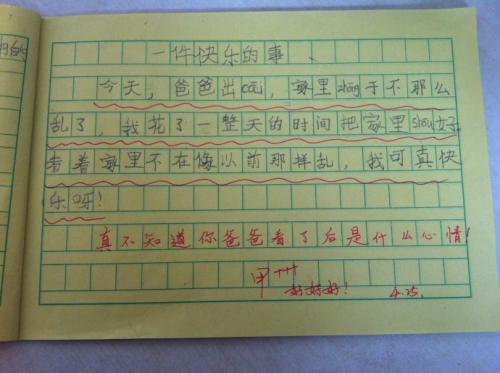 一件快乐的事
今天，爸爸出cāi，家里zhōng于不那么
乱了，我花了一整天的时间把家里shōu好
看着家里不在像以前那样乱，我可真快
乐呀！
真不知道你爸爸看了后是什么心情！
甲++
好好好！
4.25.